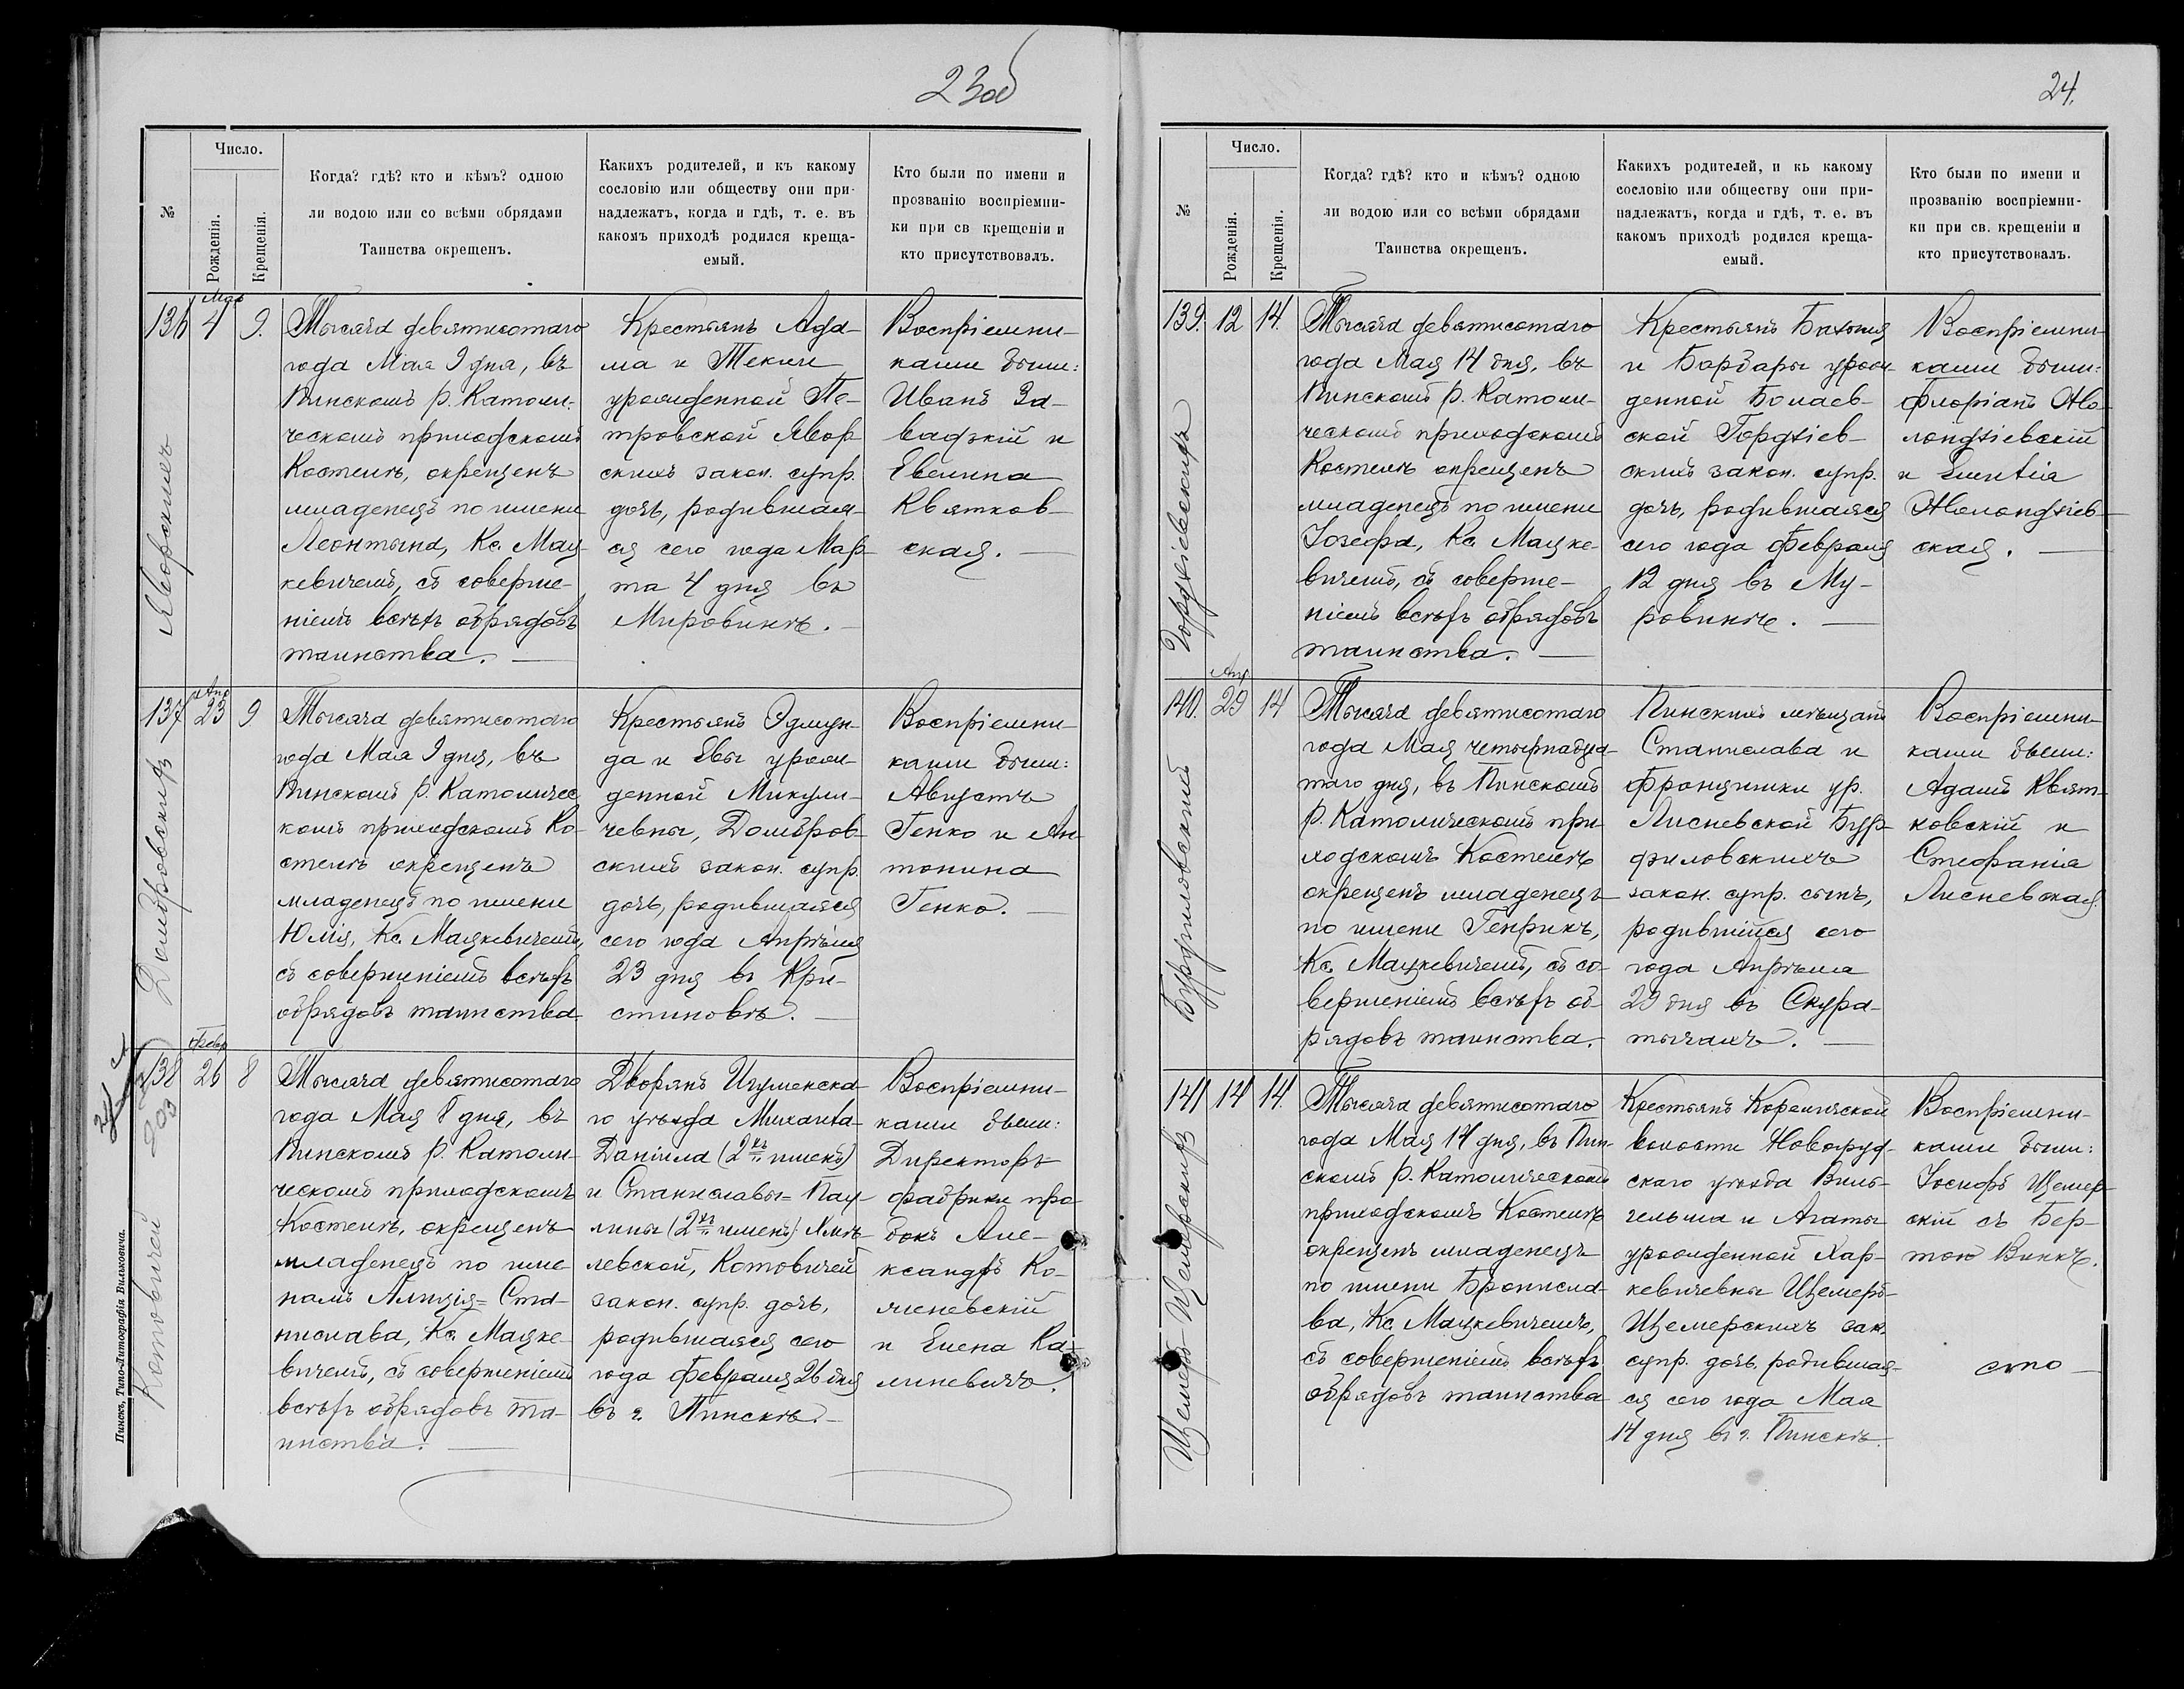 23об
№
Число.
Рожденія.
Крещенія.
Когда? гдѣ? кто и кѣмъ? одною
ли водою или со всѣми обрядами
Таинства окрещенъ.
Какихъ родителей, и къ какому
сословію или обществу они при-
надлежатъ, когда и гдѣ, т. е. въ
какомъ приходѣ родился креща-
емый.
Кто были по имени и
прозванію воспріемни-
ки при св крещеніи и
кто присутствовалъ.
136
4
9.
Тысяча девятисотаго
года Мая 9 дня, въ
Пинскомъ Р. Католи-
ческомъ приходскомъ
Костелѣ, окрещенъ
младенецъ по имени
Леонтына, Кс. Мац-
кевичемъ, съ соверше-
ніемъ всѣхъ обрядовъ
таинства.
Крестьянъ Ада-
ма и Текли
урожденной Пе-
тровской Явор-
скихъ закон. супр.
дочь, родившая-
ся сего года Мар-
та 4 дня въ
Мировинѣ.
Воспріемни-
ками были:
Иванъ За-
вадзкій и
Евелина
Квятков-
ская.
137
Апр
23
9
Домбровскихъ
Тысяча девятисотаго
года Мая 9 дня, въ
Пинскомъ Р. Католичес
комъ приходскомъ Ко-
стелѣ окрещенъ
младенецъ по имени
Юлія, Кс. Мацкевичемъ,
съ совершеніемъ всѣхъ
обрядовъ таинства
Крестьянъ Эдмун-
да и Евы урож-
денной Микули-
чевны, Домбров-
скихъ закон. супр.
дочь, родившаяся
сего года Апрѣля
23 дня въ Кри-
стиновѣ.
Воспріемни-
ками были:
Августъ
Генко и Ан
тонина
Генко.
138
Февр
26
8
Котовичей
Тысяча девятисотаго
года Мая 8 дня, въ
Пинскомъ Р. Католи-
ческомъ приходскомъ
Костелѣ, окрещенъ
младенецъ по име-
намъ Алиція=Ста-
нислава, Кс. Мацке-
вичемъ, съ совершеніемъ
всѣхъ обрядовъ та-
инства.
Дворянъ Игуменска-
го уѣзда Михаила-
Даніила (2хъ именъ)
и Станиславы=Пау-
лины (2хъ именъ)
левской, Котовичей
закон. супр. дочь,
родившаяся сего
года Февраля 26 дня
въ г. Пинскѣ.
Воспріемни-
ками были:
Директоръ
фабрики про-
бокъ Але-
ксандръ Ко-
и Елена Ка-
линевичъ.
Пинскъ, Типо-Литографія Вильковича.
24.
№
Число.
Рожденія.
Крещенія.
Когда? гдѣ? кто и кѣмъ? одною
ли водою или со всѣми обрядами
Таинства окрещенъ.
Какихъ родителей, и къ какому
сословію или обществу они при-
надлежатъ, когда и гдѣ, т. е. въ
какомъ приходѣ родился креща-
емый.
Кто были по имени и
прозванію воспріемни-
ки при св. крещеніи и
кто присутствовалъ.
139.
12
14.
Гордзіевскихъ
Тысяча девятисотаго
года Мая 14 дня, въ
Пинскомъ Р. Католи-
ческомъ приходскомъ
Костелѣ окрещенъ
младенецъ по имени
Іозефа, Кс. Мацке-
вичемъ, съ соверше-
ніемъ всѣхъ обрядовъ
таинства.
Крестьянъ
и Барбары урож-
денной
ской Гордзіев-
скихъ закон. супр.
дочь, родившаяся
сего года Февраля
12 дня въ Му-
ровинѣ.
Воспріемни-
ками были:
Флоріанъ Жо-
лондзіевскій
и Эмилія
Жолондзіев-
ская.
140.
Апр
29
14
Бурдиловскій
Тысяча девятисотаго
года Мая четырнадца-
таго дня, въ Пинскомъ
Р. Католическомъ при-
ходскомъ Костелѣ
окрещенъ младенецъ
по имени Генрикъ,
Кс. Мацкевичемъ, съ со-
вершеніемъ всѣхъ об-
рядовъ таинства.
Пинскихъ мѣщанъ
Станислава и
Францишки ур.
Лисневской Бур-
диловскихъ
закон. супр. сынъ,
родившійся сего
года Апрѣля
29 дня въ Скура-
тычахъ.
Воспріемни-
ками были:
Адамъ Квят-
ковскій и
Стефанія
Лисневская.
141
14
14.
Щемеръ-Щемерскихъ
Тысяча девятисотаго
года Мая 14 дня, въ Пин-
скомъ Р. Католическомъ
приходскомъ Костелѣ
окрещенъ младенецъ
по имени Бронисла-
ва, Кс. Мацкевичемъ,
съ совершеніемъ всѣхъ
обрядовъ таинства
Крестьянъ Кореличской
волости Новогруд-
скаго уѣзда Виль-
гельма и Агаты
урожденной Хар-
кевичевны Щемеръ-
Щемерскихъ зак.
супр. дочь, родившая-
ся сего года Мая
14 дня въ г. Пинскѣ.
Воспріемни-
ками были:
Іосифъ Щемер-
скій съ Бер-
тою Винкъ.